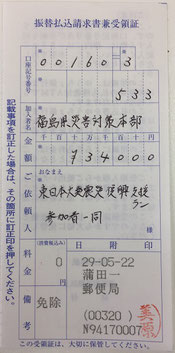 振替払込請求書兼受領証
口座記号番号
00160-3
533
加入者名
福島県災害対策本部
金額
千百十万千百十円
734000
ご依頼人
おなまえ
東日本大震災復興支援
ラン
参加者一同
料金
(消費税込み)
0円
備考
免除
日附印
29-05-22
蒲田一
郵便局
(00320)
N94170007
記載事項を訂正した場合は、その箇所に訂正印を押してください。
この受領証は、大切に保管してください。